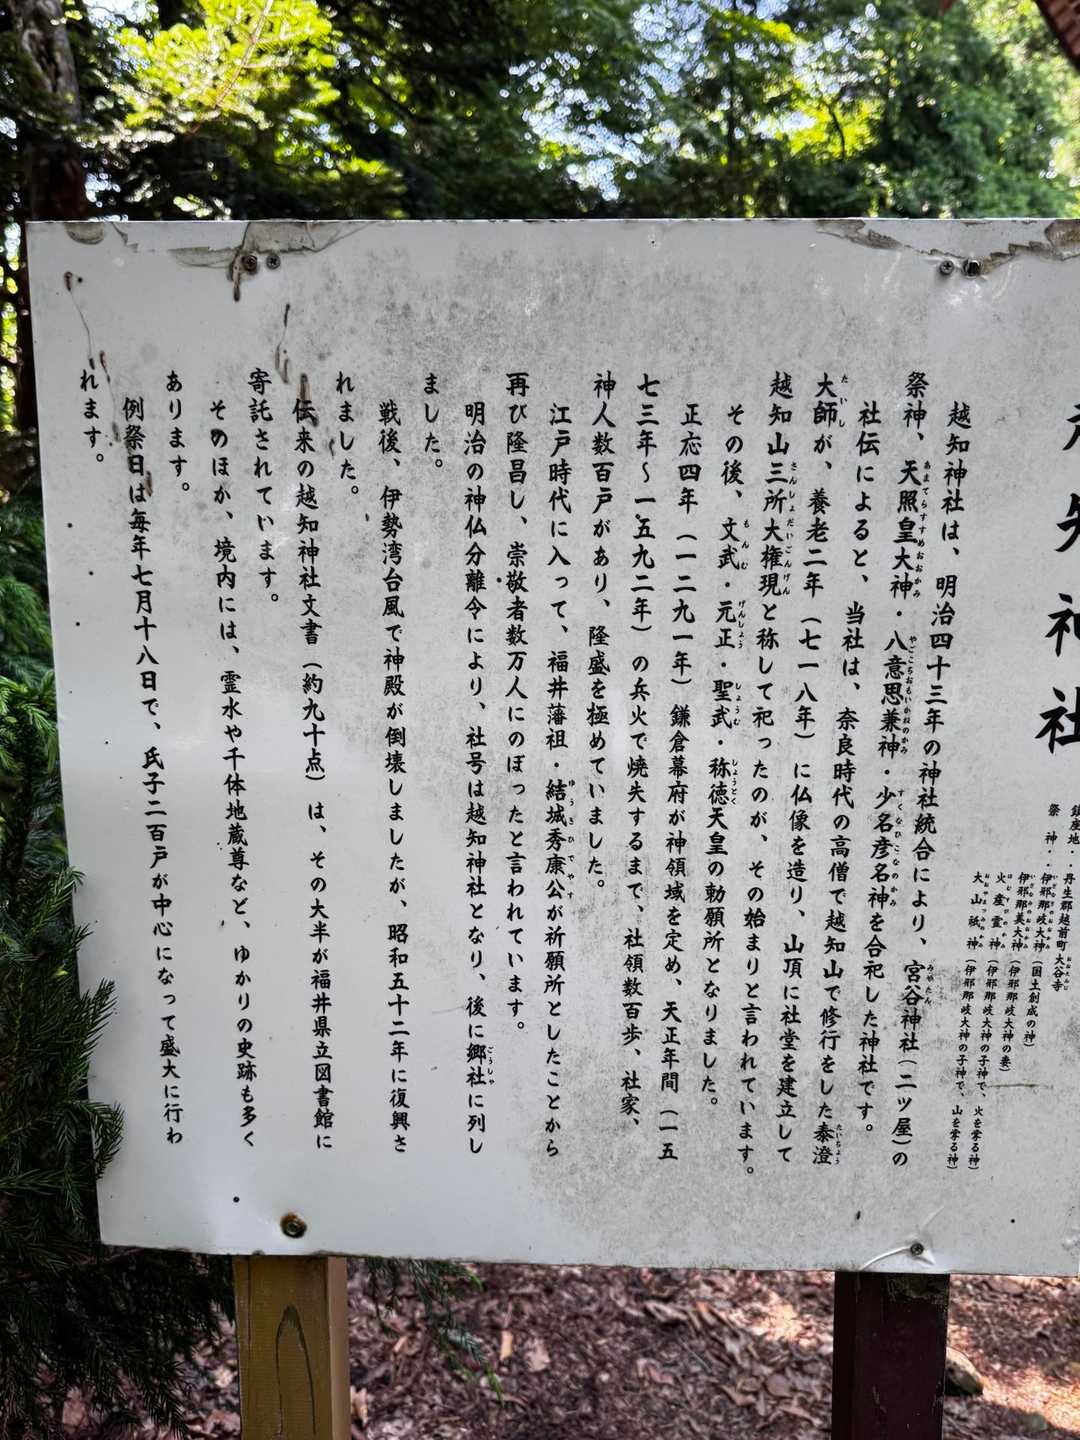 越知神社
鎮座地・・丹生郡越前町大谷寺
祭　神・・伊邪那岐大神（国土創成の神）
伊邪那美大神（伊邪那岐大神の妻）
火産霊神（伊邪那岐大神の子神で、火を掌る神）
大山祇神（伊邪那岐大神の子神で、山を掌る神）
越知神社は、明治四十三年の神社統合により、宮谷神社（二ツ屋）の
祭神、天照皇大神・八意思兼神・少名彦名神を合祀した神社です。
社伝によると、当社は、奈良時代の高僧で越知山で修行をした泰澄
大師が、養老二年（七一八年）に仏像を造り、山頂に社堂を建立して
越知山三所大権現と称して祀ったのが、その始まりと言われています。
その後、文武・元正・聖武・称徳天皇の勅願所となりました。
正応四年（一二九一年）鎌倉幕府が神領域を定め、天正年間（一五
七三年〜一五九二年）の兵火で焼失するまで、社領数百歩、社家、
神人数百戸があり、隆盛を極めていました。
江戸時代に入って、福井藩祖・結城秀康公が祈願所としたことから
再び隆昌し、崇敬者数万人にのぼったと言われています。
明治の神仏分離令により、社号は越知神社となり、後に郷社に列し
ました。
戦後、伊勢湾台風で神殿が倒壊しましたが、昭和五十二年に復興さ
れました。
伝来の越知神社文書（約九十点）は、その大半が福井県立図書館に
寄託されています。
そのほか、境内には、霊水や千体地蔵尊など、ゆかりの史跡も多く
あります。
例祭日は毎年七月十八日で、氏子二百戸が中心になって盛大に行わ
れます。